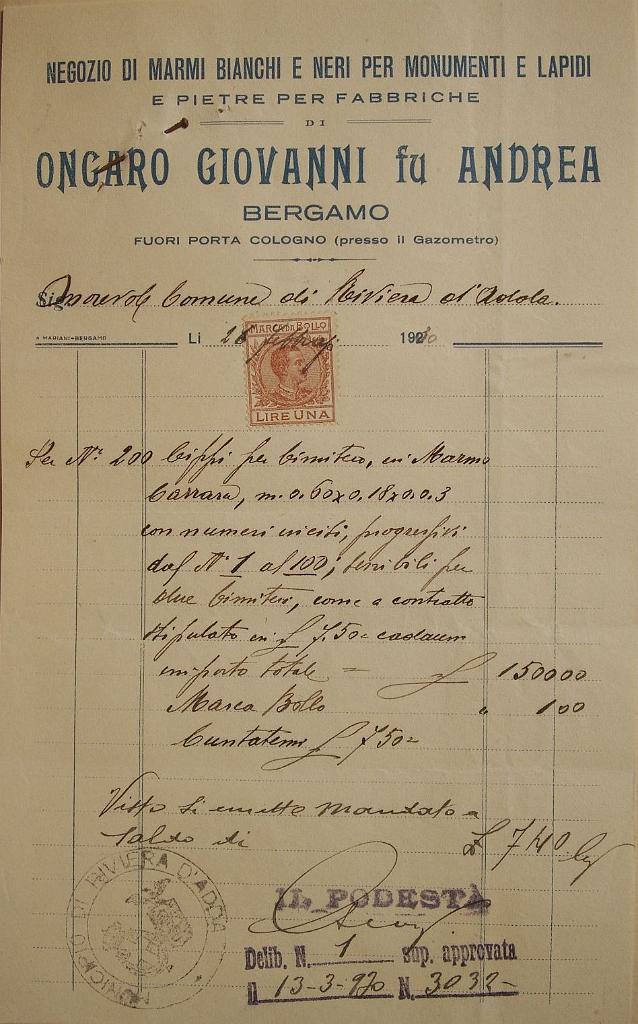 NEGOZIO DI MARMI BIANCHI E NERI PER MONUMENTI E LAPIDI
E PIETRE PER FABBRICHE
DI
ONGARO GIOVANNI fu ANDREA
BERGAMO
FUORI PORTA COLOGNO (presso il Gazometro)
Sig Comune di Riviera d'Adda.
A MARIANI-BERGAMO
Li 26 febbraio 1930
MARCA DA BOLLO
LIRE UNA
Per N.º 200 Cippi per Cimitero, in Marmo
Carrara, m. 0.60x0.18x0.0.3
con numeri incisi, progressivi
dal N.º 1 al 100; per
due Cimiteri, come a contratto
stipulato in £ 7.50= cadauno
importo totale = £ 1500 00
Marca Bollo " 1.00
£ 750=
Visto si emette mandato a
saldo di £ 740
MUNICIPIO DI RIVIERA D'ADDA
IL PODESTÀ
Delib. N. 1 sup. approvata
il 13-3-930 N. 3032-